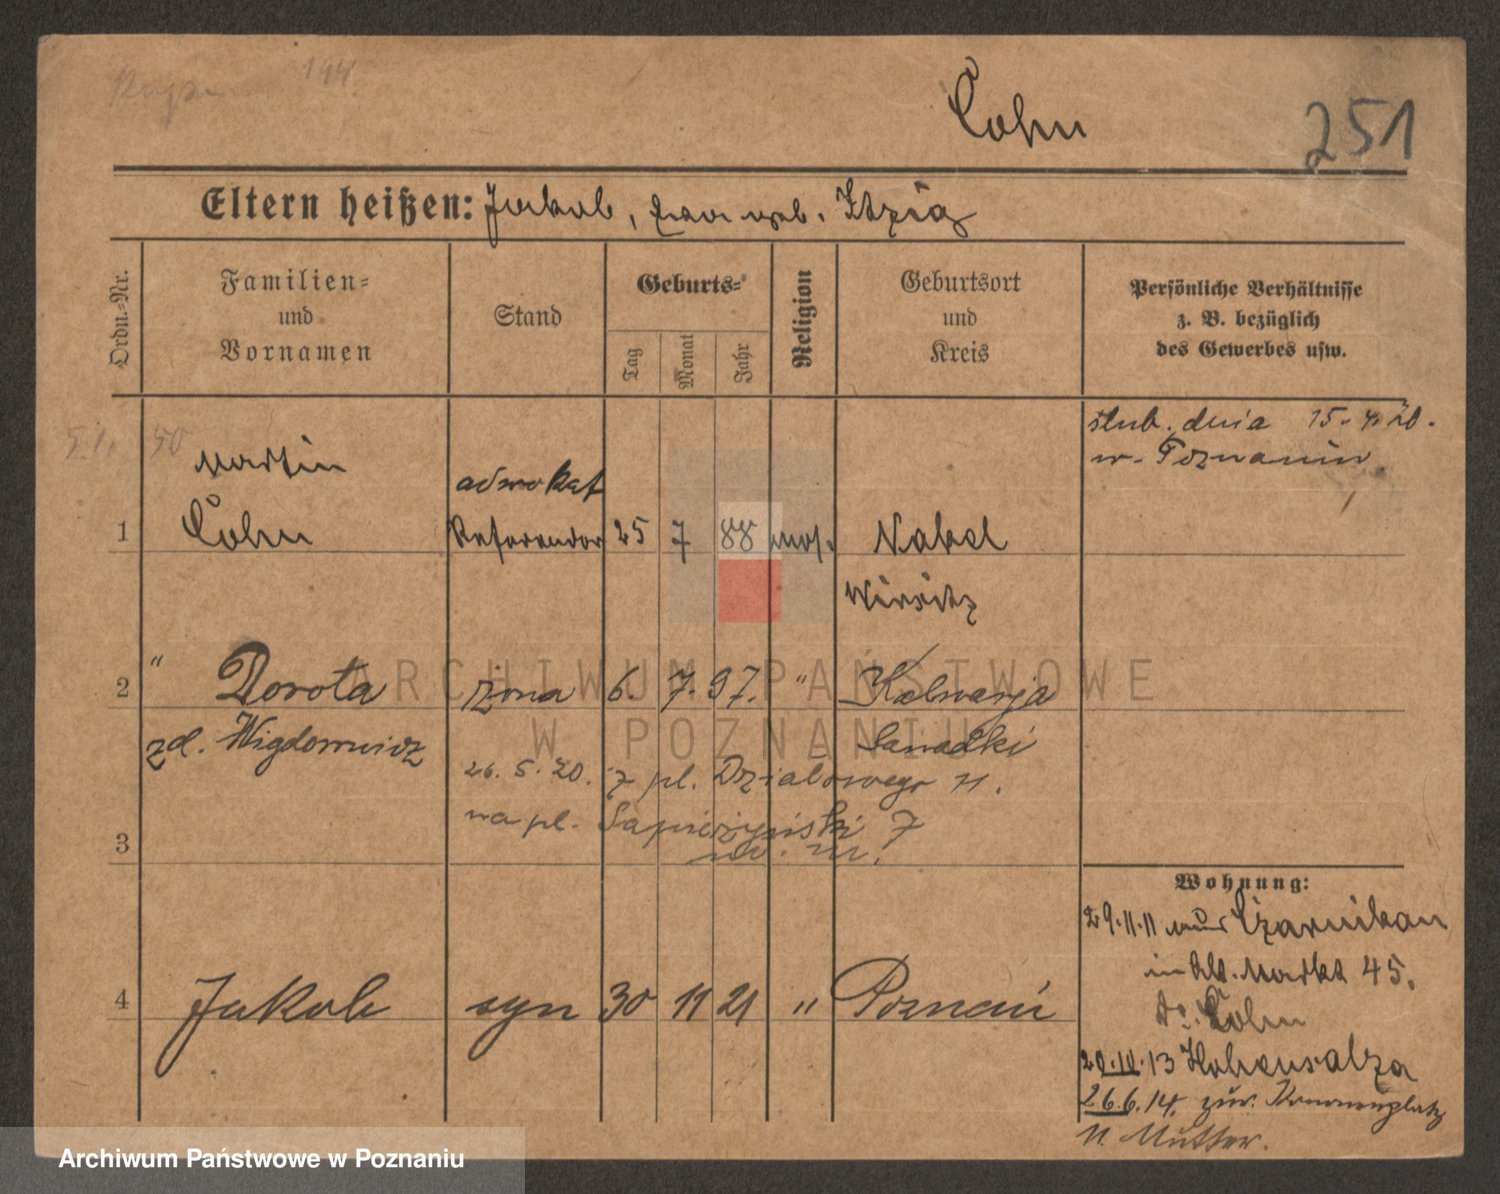 144.
Cohn
251
Eltern heißen: Jakob, geb. Itzig
Ordn.-Nr.
Familien-
und
Vornamen
Stand
Geburts-
Tag
Monat
Jahr
Religion
Geburtsort
und
Kreis
Persönliche Verhältnisse
z. B. bezüglich
des Gewerbes usw.
ślub. dnia 15.4.20.
w. Poznaniu
50
Martin
adwokat
1 Cohn Referendar 25 7 88 mos. Nakel
Wirsitz
2 " Dorota żona 6. 7. 97. " Kalwarja
zd. Wigdorowicz
26. 5. 20. z pl. Działowego 11.
na pl. Sapieżyński 7
3
4 Jakob syn 30 11 21 " Poznań
Wohnung:
29.11.11 aus Czarnikau
in Alt. Markt 45.
Cohn
20.10.13 Hohensalza
26.6.14. zur. Kanonenplatz
11. Mutter.
ARCHIWUM PAŃSTWOWE
W POZNANIU
Archiwum Państwowe w Poznaniu